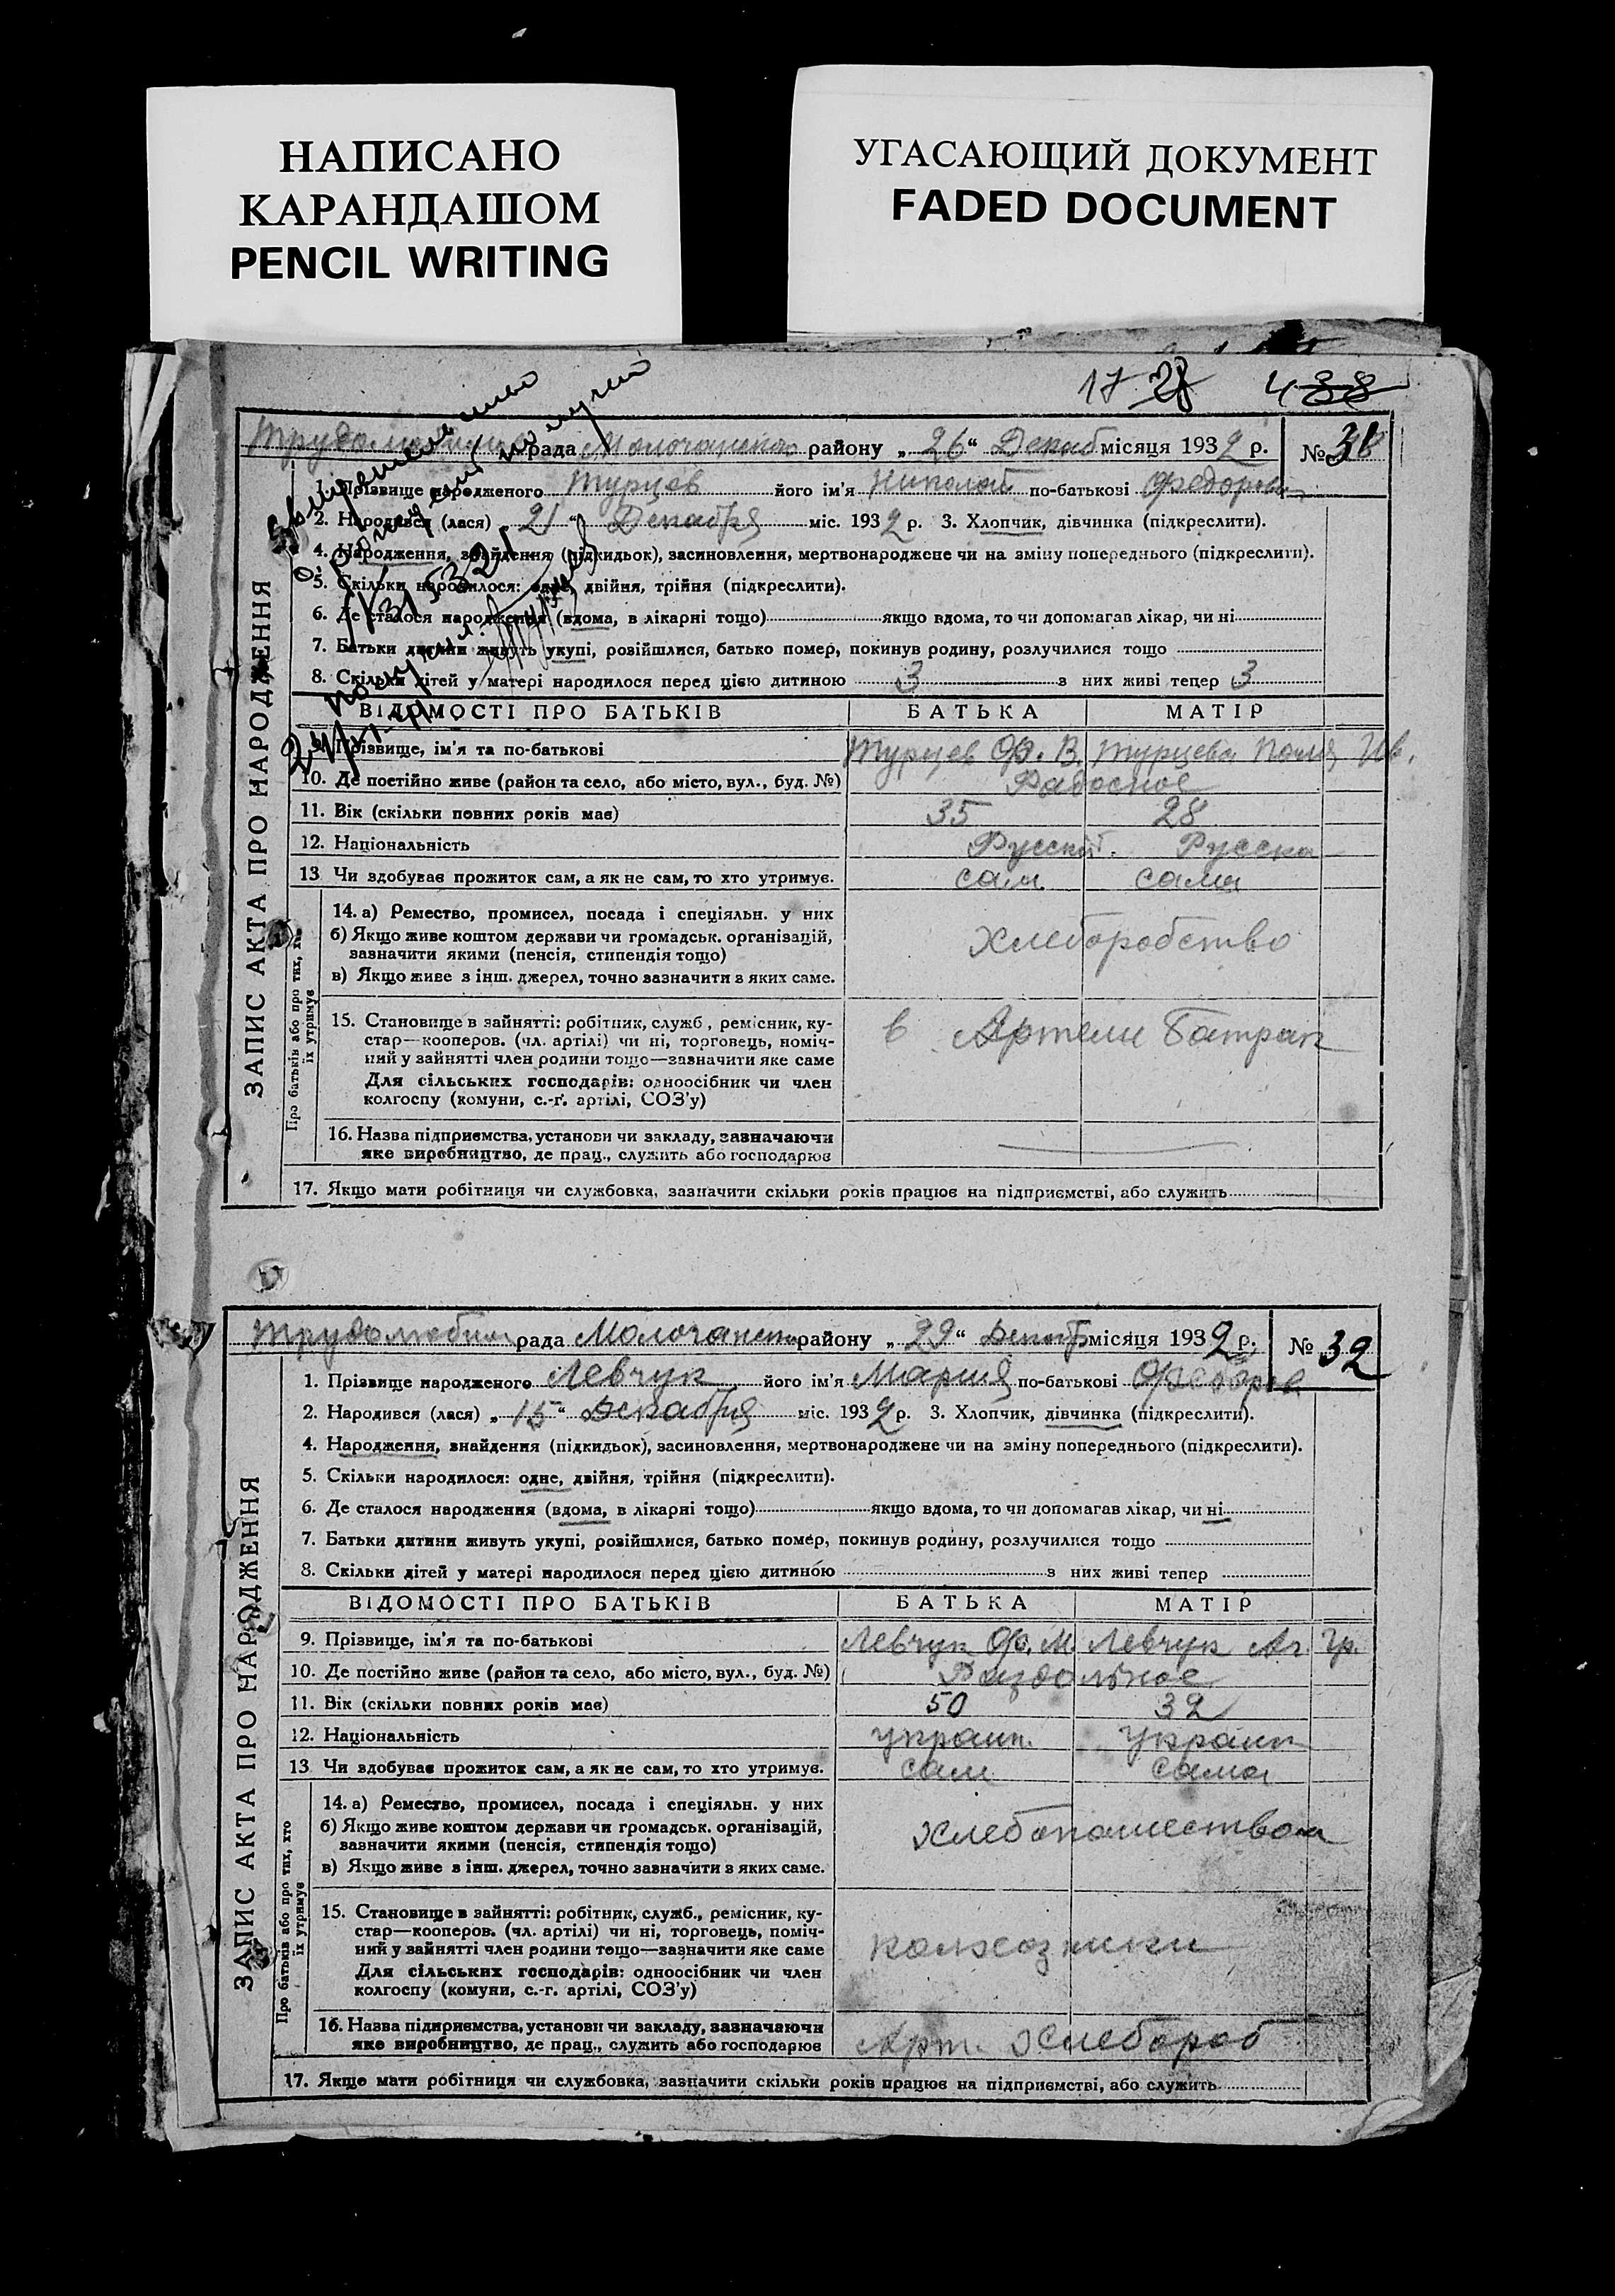 НАПИСАНО
КАРАНДАШОМ
PENCIL WRITING
УГАСАЮЩИЙ ДОКУМЕНТ
FADED DOCUMENT
17
ЗАПИС АКТА ПРО НАРОДЖЕННЯ
рада Молочанского району „26“ Декаб місяця 1932 р. № 31
1. Прізвище народженого Турцев його ім'я Николай по-батькові Федоров
2. Народився (лася) 21“ Декабря міс. 1932 р. 3. Хлопчик, дівчинка (підкреслити).
4. Народження, знайдення (підкидьок), засиновлення, мертвонароджене чи на зміну попереднього (підкреслити).
5. Скільки народилося: одне, двійня, трійня (підкреслити).
6. Де сталося народження (вдома, в лікарні тощо) якщо вдома, то чи допомагав лікар, чи ні
7. Батьки дитини живуть укупі, розійшлися, батько помер, покинув родину, розлучилися тощо
8. Скільки дітей у матері народилося перед цією дитиною 3 з них живі тепер 3
ВІДОМОСТІ ПРО БАТЬКІВ БАТЬКА МАТІР
9. Прізвище, ім'я та по-батькові Турцев Ф. В. Турцева Ив.
10. Де постійно живе (район та село, або місто, вул., буд. №) Радосное
11. Вік (скільки повних років має) 35 28
12. Національність Русский. Русска
13 Чи здобуває прожиток сам, а як не сам, то хто утримує. сам сама
Про батьків або про тих, хто їх утримує
14. а) Ремество, промисел, посада і спеціяльн. у них
б) Якщо живе коштом держави чи громадськ. організацій,
зазначити якими (пенсія, стипендія тощо) Хлеборобство
в) Якщо живе з інш. джерел, точно зазначити з яких саме.
15. Становище в зайнятті: робітник, служб., ремісник, ку-
стар—кооперов. (чл. артілі) чи ні, торговець, поміч- в Артели батрак
ний у зайнятті член родини тощо—зазначити яке саме
Для сільських господарів: одноосібник чи член
колгоспу (комуни, с.-г. артілі, СОЗ'у)
16. Назва підприємства, установи чи закладу, зазначаючи
яке виробництво, де прац., служить або господарює
17. Якщо мати робітниця чи службовка, зазначити скільки років працює на підприємстві, або служить
ЗАПИС АКТА ПРО НАРОДЖЕННЯ
Трудолюбим рада Молочанско району „29“ Декабр місяця 1932 р. № 32
1. Прізвище народженого Левчук його ім'я Мария по-батькові Федоров
2. Народився (лася) „15“ Декабря міс. 1932 р. 3. Хлопчик, дівчинка (підкреслити).
4. Народження, знайдення (підкидьок), засиновлення, мертвонароджене чи на зміну попереднього (підкреслити).
5. Скільки народилося: одне, двійня, трійня (підкреслити).
6. Де сталося народження (вдома, в лікарні тощо) якщо вдома, то чи допомагав лікар, чи ні
7. Батьки дитини живуть укупі, розійшлися, батько помер, покинув родину, розлучилися тощо
8. Скільки дітей у матері народилося перед цією дитиною з них живі тепер
ВІДОМОСТІ ПРО БАТЬКІВ БАТЬКА МАТІР
9. Прізвище, ім'я та по-батькові Левчук Ф. М. Левчук Аг. Гр.
10. Де постійно живе (район та село, або місто, вул., буд. №) Раздольное
11. Вік (скільки повних років має) 50 32
12. Національність украин. украин
13 Чи здобуває прожиток сам, а як не сам, то хто утримує. сам сама
Про батьків або про тих, хто їх утримує
14. а) Ремество, промисел, посада і спеціяльн. у них
б) Якщо живе коштом держави чи громадськ. організацій, Хлебопашеством
зазначити якими (пенсія, стипендія тощо)
в) Якщо живе з інш. джерел, точно зазначити з яких саме.
15. Становище в зайнятті: робітник, служб., ремісник, ку-
стар—кооперов. (чл. артілі) чи ні, торговець, поміч-
ний у зайнятті член родини тощо—зазначити яке саме колхозники
Для сільських господарів: одноосібник чи член
колгоспу (комуни, с.-г. артілі, СОЗ'у)
16. Назва підприємства, установи чи закладу, зазначаючи
яке виробництво, де прац., служить або господарює Арт. Хлебороб
17. Якщо мати робітниця чи службовка, зазначити скільки років працює на підприємстві, або служить